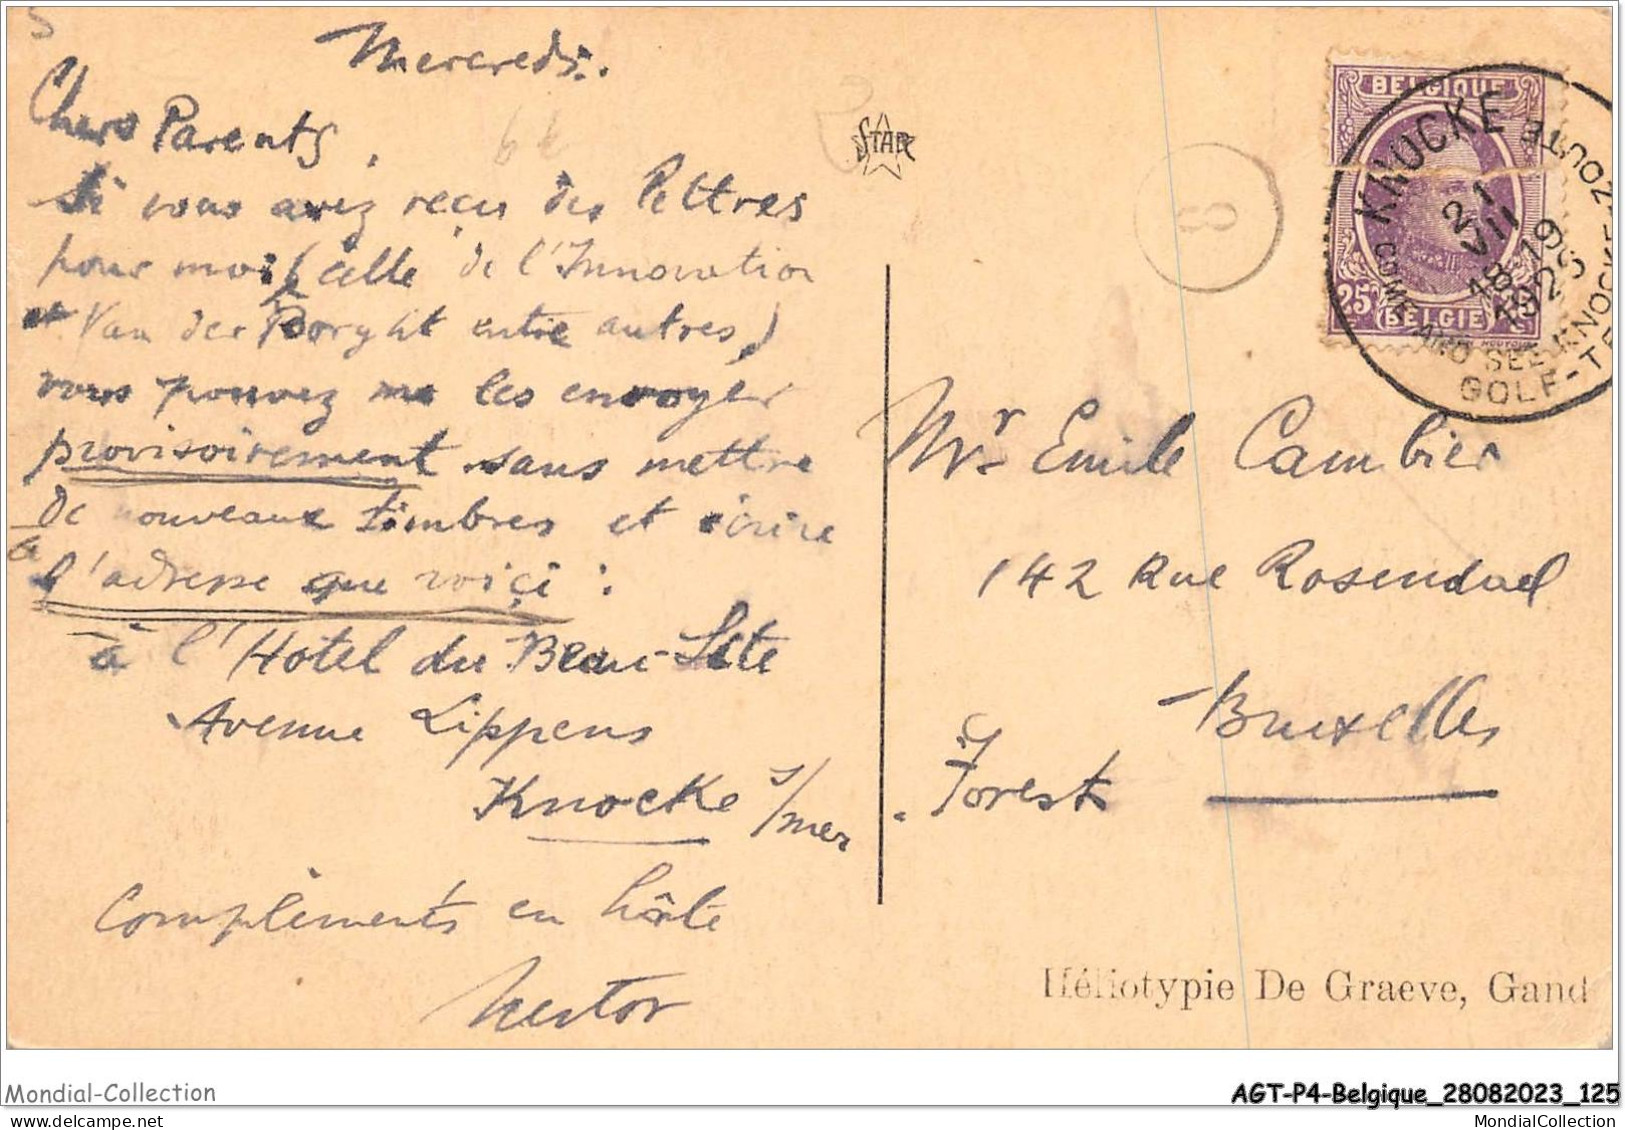 Mercredi.
Chers Parents,
Si vous avez reçu des lettres
pour moi (celle de l'Innovation
et Van der Borght entre autres)
vous pouvez me les envoyer
provisoirement sans mettre
de nouveaux timbres et écrire
l'adresse que voiçi :
à l'Hotel du Beau-Site
Avenue Lippens
Knocke s/mer
Compliments en hâte
Nestor
STAR
8
BELGIQUE
25c
BELGIE
KNOCKE ZOUTE
21
VII
18-19
COME AND SEE KNOCKE-ZOUTE
GOLF-TE
Mr Emile Cambier
142 Rue Rosendael
Bruxelles
Forest
Héliotypie De Graeve, Gand
Mondial-Collection
AGT-P4-Belgique_28082023_125
www.delcampe.net
MondialCollection